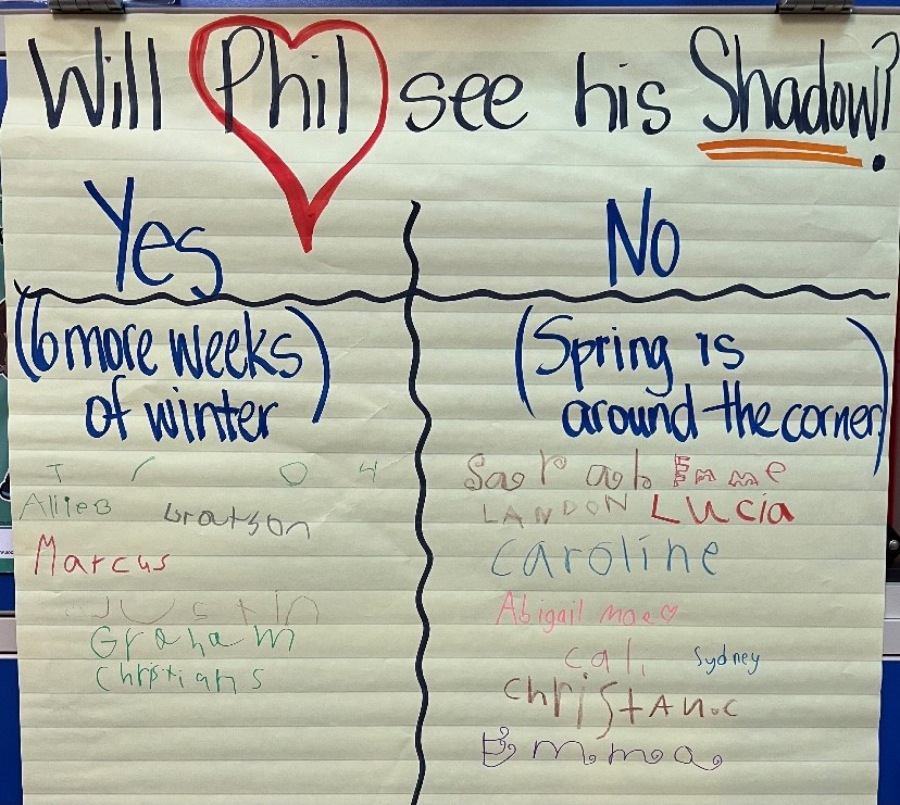 Will Phil see his Shadow?
Yes
(6 more weeks)
of winter
Allie B
Marcus
Justin
Graham
Christian S
No
(Spring is
around the corner)
Sarah Emme
LANDON Lucia
Caroline
Abigail mae♡
cal Sydney
ChriStAn.c
Emma